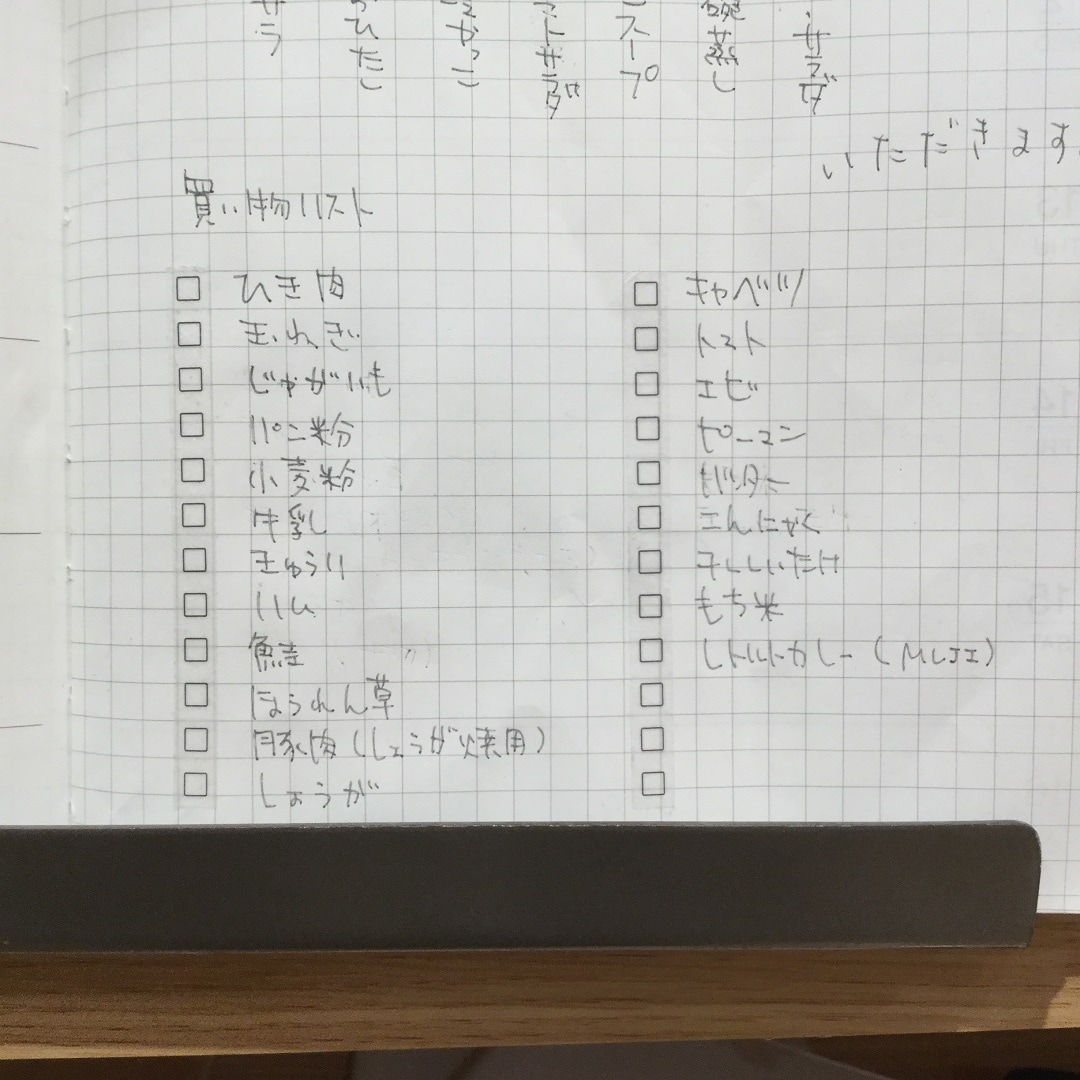 サラ
ひたし
やっこ
トサラダ
スープ
碗蒸し
サラダ
いただきます
買い物リスト
ひき肉
玉ねぎ
じゃがいも
パン粉
小麦粉
牛乳
きゅうり
ハム
ほうれん草
豚肉(しょうが焼用)
しょうが
キャベツ
トマト
エビ
ピーマン
バター
こんにゃく
干ししいたけ
もち米
レトルトカレー(MUJI)